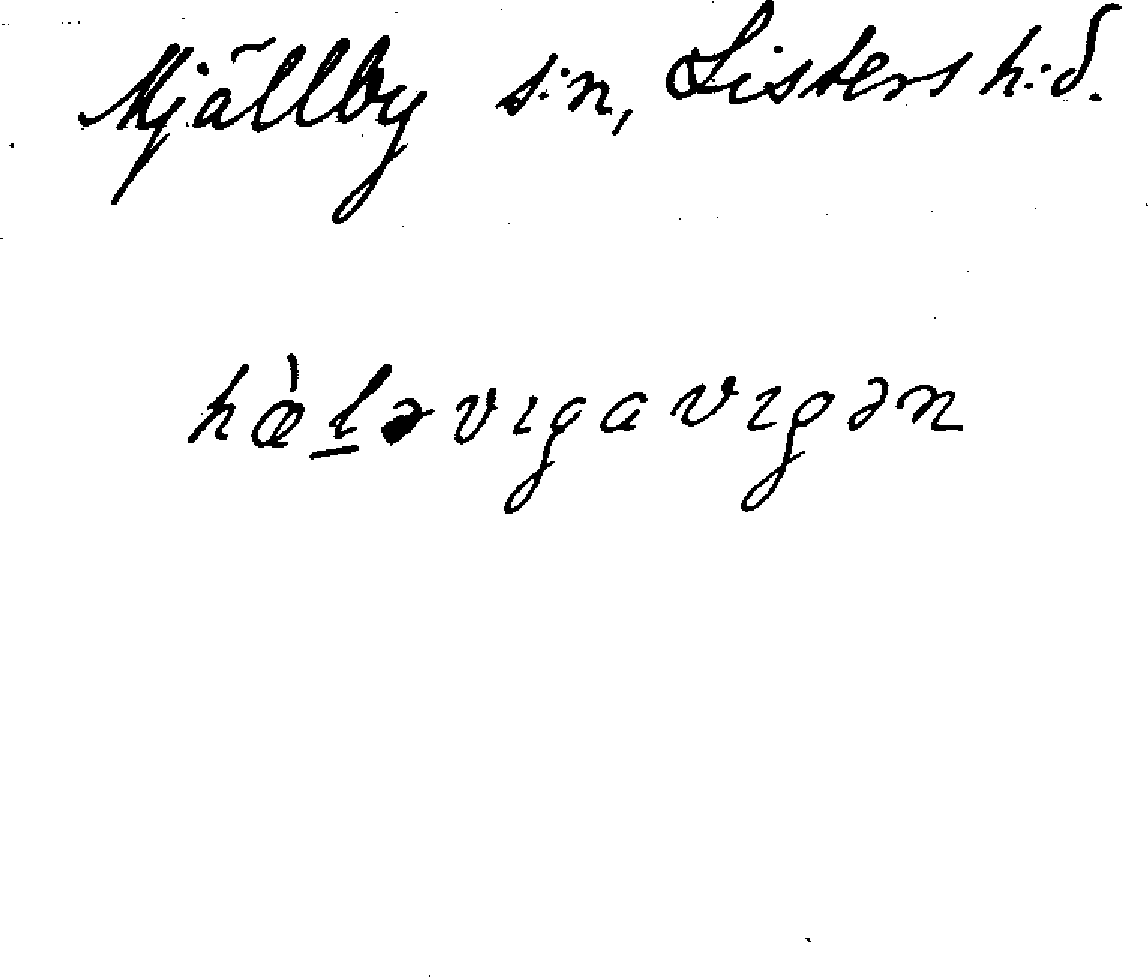 Mjällby s:n, Listers h:d.
hæ̀l̲əvıgavıgən